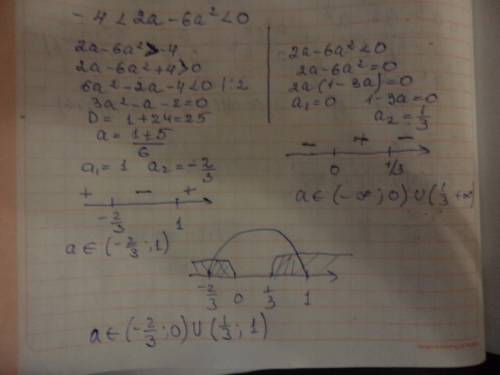 -4 < 2a - 6a² < 0
2a - 6a² > -4
2a - 6a² + 4 > 0
6a² - 2a - 4 < 0 | : 2
3a² - a - 2 = 0
D = 1 + 24 = 25
a = (1 ± 5)/6
a₁ = 1 a₂ = -2/3
+ - +
-2/3 1
a ∈ (-2/3; 1)
2a - 6a² < 0
2a - 6a² = 0
2a(1 - 3a) = 0
a₁ = 0 1 - 3a = 0
a₂ = 1/3
- + -
0 1/3
a ∈ (-∞; 0) ∪ (1/3; +∞
-2/3 0 1/3 1
a ∈ (-2/3; 0) ∪ (1/3; 1)